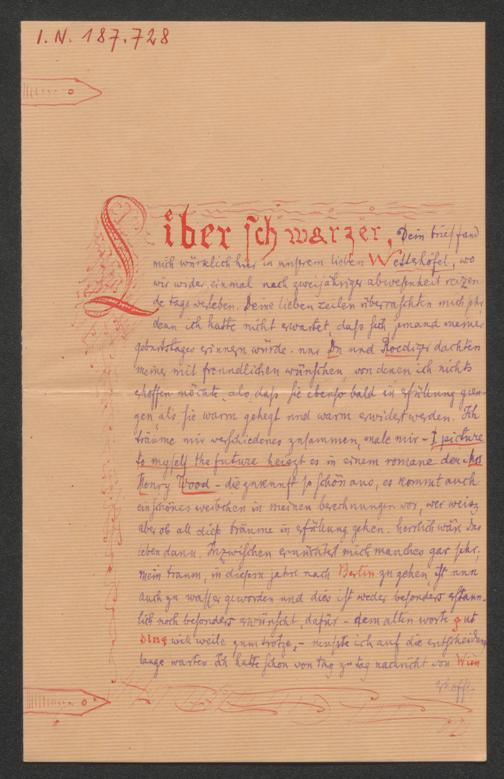 I. N. 187.728
Liber schwarzer, Dein brief fand
mich würklich hier in unsrem lieben Wettzhöfel, wo
wir wider einmal nach zweijähriger abwesenheit reizen-
de tage verleben. Deine lieben zeilen überraschten mich sehr,
denn ich hatte nicht erwartet, dass sich jemand meines
geburtstages erinnern würde. nur Du und Roediger dachten
meiner mit freundlichen wünschen von denen ich nichts
ehoffen möchte, als dass sie ebenso bald in erfüllung gien-
gen als sie warm gehegt und warm erwidert werden. Ich
träume mir verschiedenes zusammen, male mir – I picture
to myself the future heiszt es in einem romane der Mrs
Henry Wood – die zukunft so schön aus, es kommt auch
ein schönes weibchen in meinen berechnungen vor, wer weisz
aber ob all diese träume in erfüllung gehen. herrlich wäre das
leben dann. Inzwischen ernüchtert mich manches gar sehr.
mein traum, in diesem jahre nach Berlin zu gehen, ist nun
auch zu wasser geworden und dies ist weder besonders erstaun-
lich noch besonders erwünscht, dafür – dem alten worte gut
ding wich weile zum trotze, – musste ich auf die entscheidung
lange warten. Ich hatte schon von tag zu tag nachricht von Wien